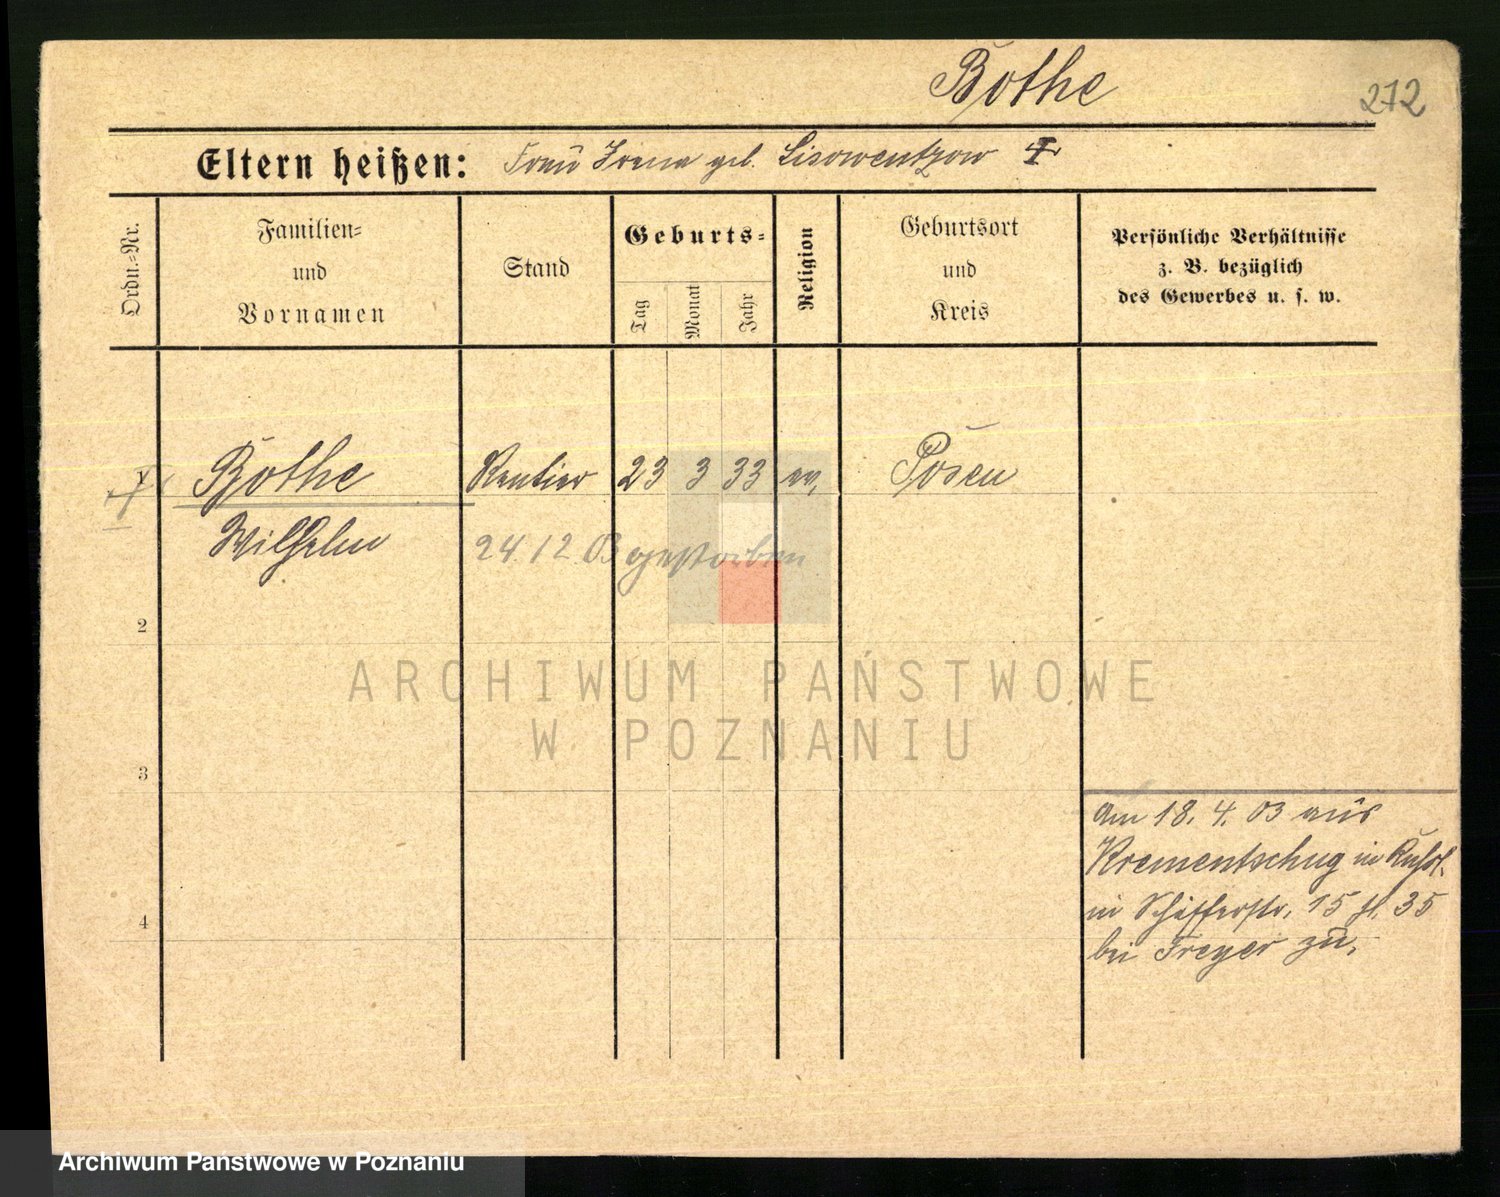 Bothe
272
Eltern heißen: Frau Irena geb. Lisowentzow †
Ordn.-Nr.
Familien- und Vornamen
Stand
Geburts-
Tag
Monat
Jahr
Religion
Geburtsort und Kreis
Persönliche Verhältnisse
z. B. bezüglich
des Gewerbes u. s. w.
1 Bothe Rentier 23 3 33 ev. Posen
Wilhelm 24 12 03 gestorben
2
ARCHIWUM PAŃSTWOWE
W POZNANIU
3
am 18. 4. 03 aus
Krementschug in Rußl.
in Schifferstr. 15 35
4
bei Freyer zu.
Archiwum Państwowe w Poznaniu